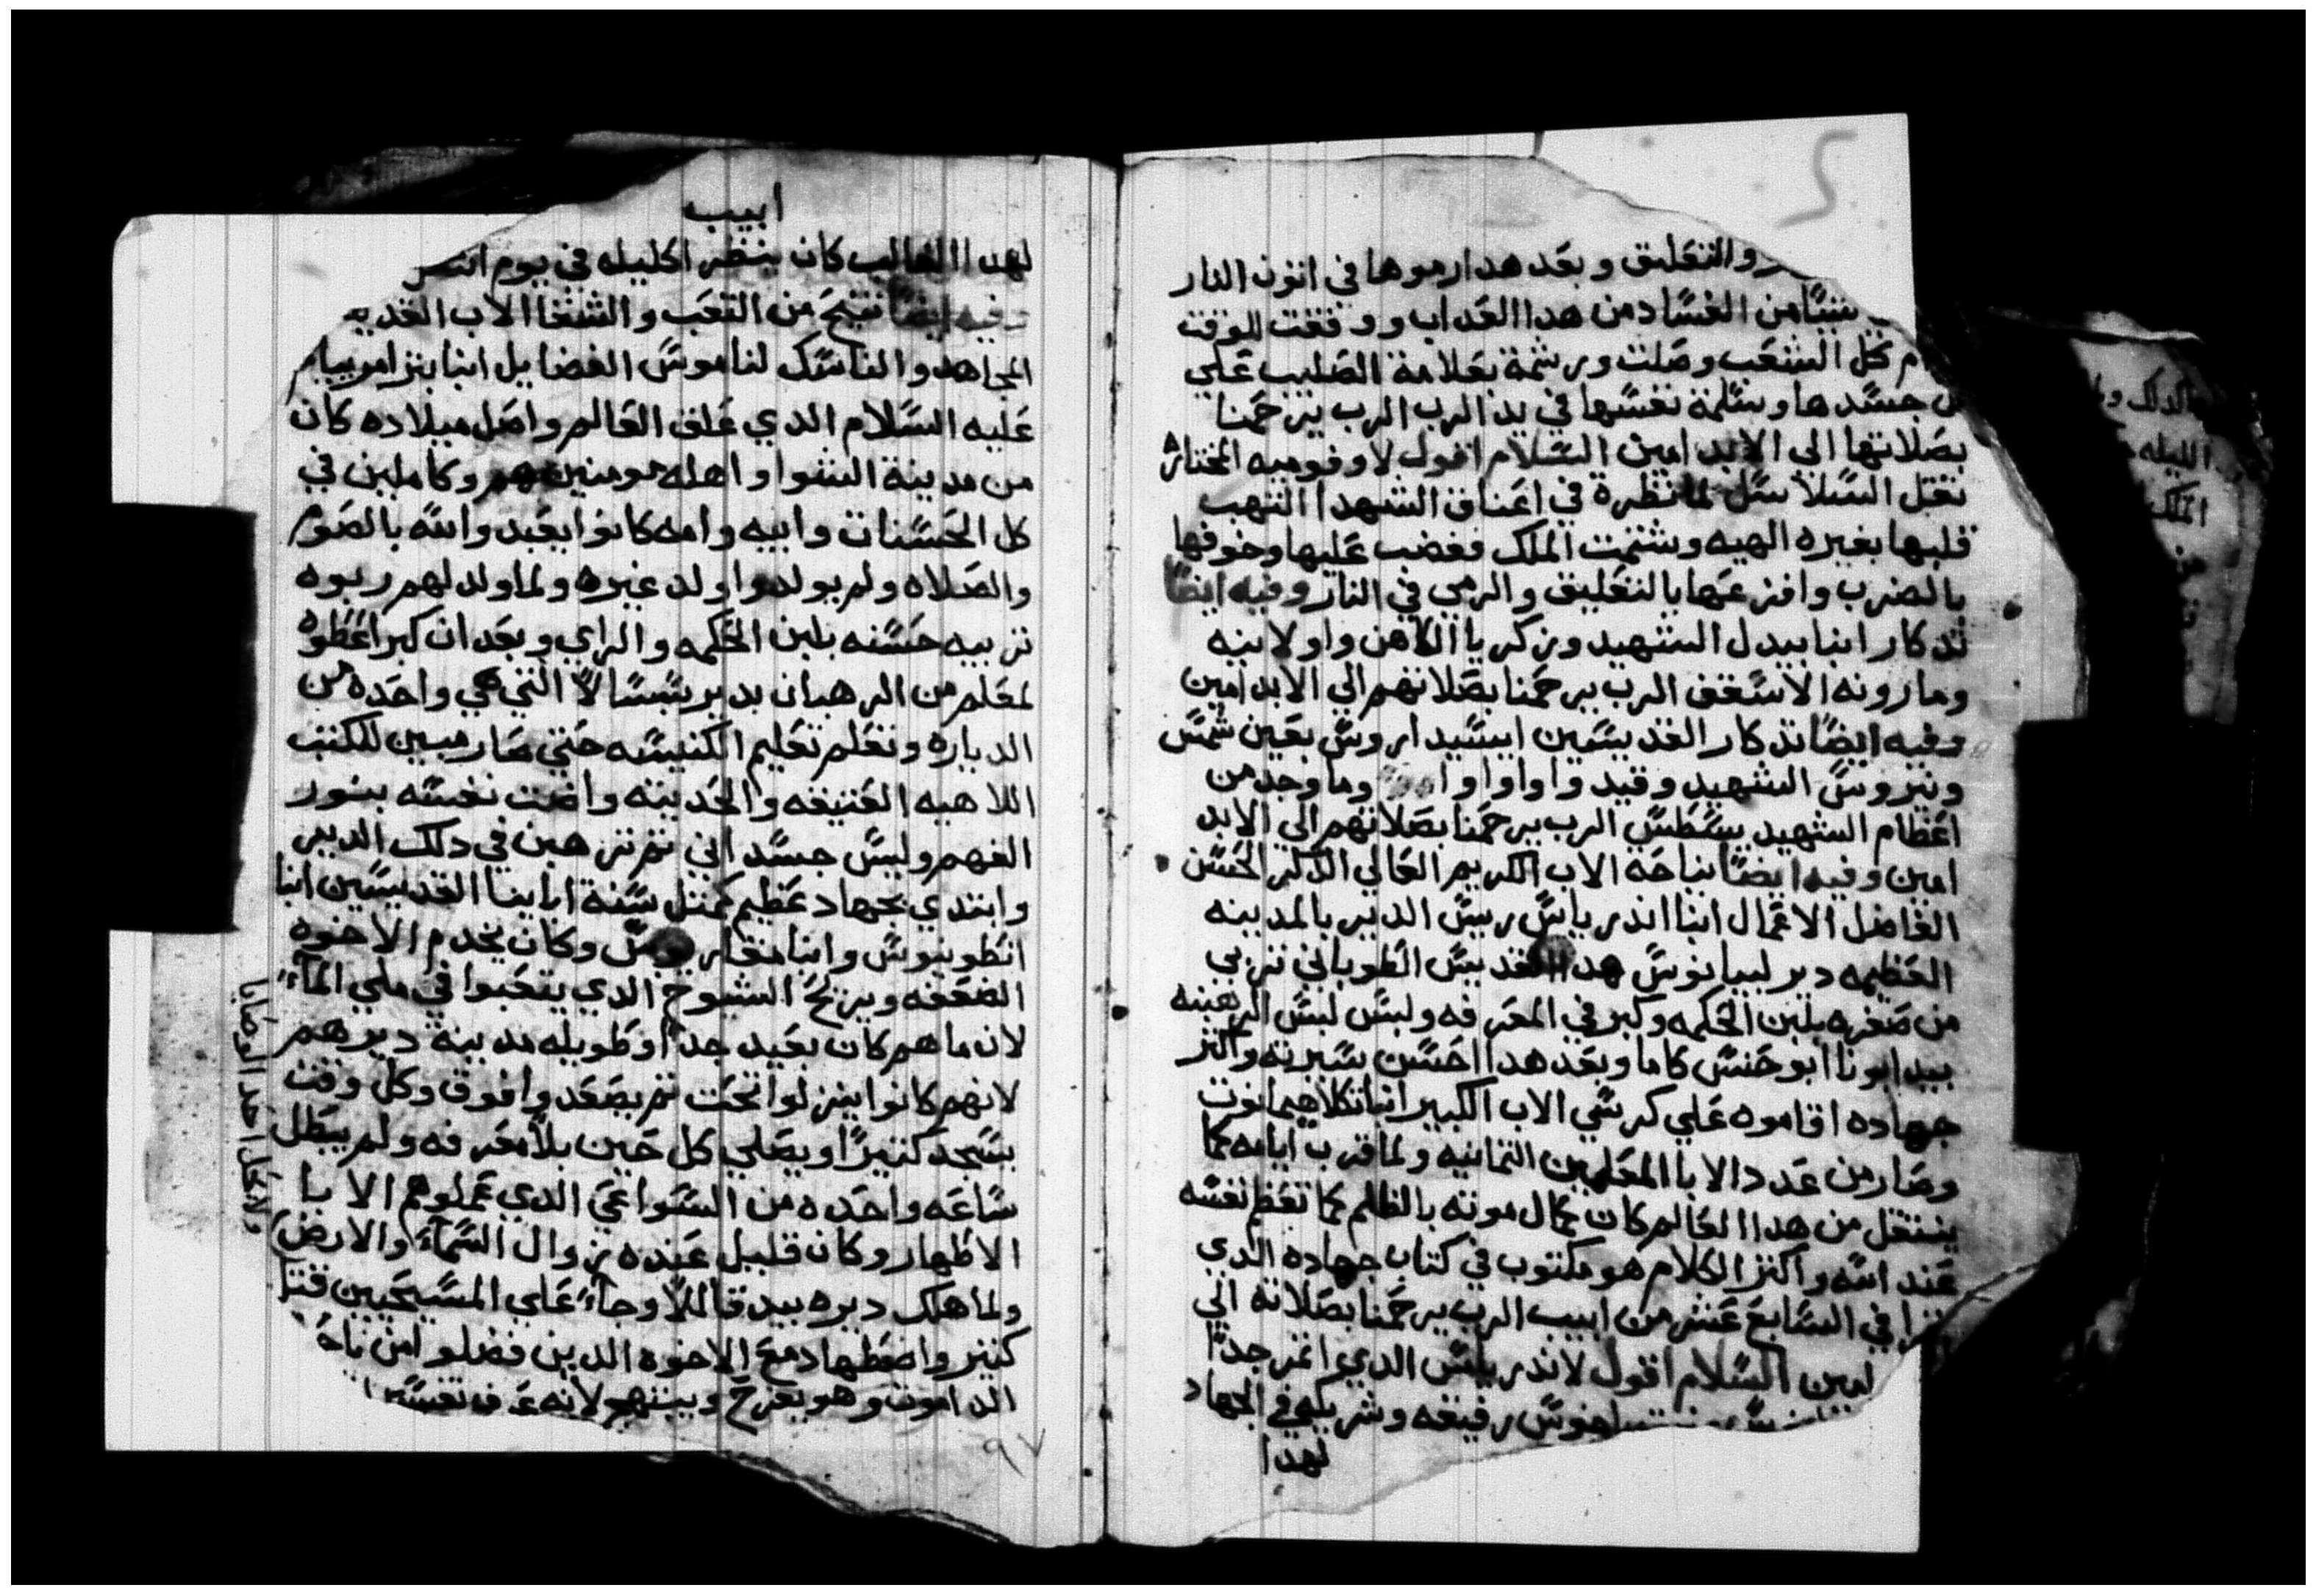 والتعليق وبعد هدا رموها في اتون النار
من الفساد من هدا العداب ووقفت للوقت
كل الشعب وصلت ورشمة بعلامة الصليب علي
جسدها وسلمة نفسها في يد الرب الرب يرحمنا
بصلاتها الي الابد امين السلام اقول لاوفوميه المختاره
لما نظرة في اعناق الشهدا التهب
قلبها بغيره الهيه وشتمت الملك فغضب عليها وخوفها
بالضرب وافزعها بالتعليق والرمي في النار وفيه ايضا
تدكار انبا بيدل الشهيد وزكريا الكاهن واولا بنيه
ومارونه الاسقف الرب يرحمنا بصلاتهم الي الابد امين
وفيه ايضا تدكار القديسين ايسيداروس بعين شمس
الشهيد وقيد وما وجد من
اعظام الشهيد الرب يرحمنا بصلاتهم الي الابد
امين وفيه ايضا نياحة الاب الكريم العالي الدكر الحسن
الفاضل الاعمال انبا اندرياس ريس الدير بالمدينه
العظيمه دير ليبانوس هدا القديس الطوباني تربي
من صغره بلبن الحكمه وكبر في المعرفه ولبس لبس الرهبنه
بيد ابونا ابو حنس كاما وبعد هدا احسن سيرته واكثر
جهاده اقاموه علي كرسي الاب الكبير انبا تكلاهيمانوت
وصار من عدد الابا المعلمين التمانيه ولما قرب ايامه كما
ينتقل من هدا العالم كان كمال موته بالظلم كما تعظم نفسه
عند الله واكتر الكلام هو مكتوب في كتاب جهاده الدي
في السابع عشر من ابيب الرب يرحمنا بصلاته الي
امين السلام اقول لاندرياس الدي اتمر جدا
رفيقه وشريكه في الجهاد
لهدا
ابيب
لهدا الغالب كان ينظر اكليله في يوم
وفيه ايضا تنيح من التعب والشقا الاب القديس
المجاهد والناسك لناموس الفضايل انبا
عليه السلام الدي غلق العالم واصل ميلاده كان
من مدينة الشوا واهله مومنين هم وكاملين في
كل الحسنات وابيه وامه كانوا يعبدوا الله بالصوم
والصلاه ولم يولدوا ولد غيره ولما ولد لهم ربوه
تربيه حسنه بلبن الحكمه والراي وبعد ان كبر اعطوه
لمعلم من الرهبان بدير التي هي واحده من
الدياره وتعلم تعليم الكنيسه حتي صار مبين للكتب
اللاهيه العتيقه والحديثه واضت نفسه بنور
الفهم وليس جسداني ثم ترهبن في دلك الدير
وابتدي بجهاد عظيم كمثل سنة اباينا القديسين انبا
انطونيوس وانبا مقاريوس وكان يخدم الاخوه
الضعفه ويريح الشيوخ الدي يتعبوا في ملي الماء
لان ماهم كان بعيد جدا وطويله مدينة ديرهم
لانهم كانوا ينزلوا تحت ثم يصعدوا فوق وكل وقت
يسجد كثيرا ويصلي كل حين بلا معرفه ولم يبطل
ساعه واحده من السواعي الدي عملوهم الابا
الاطهار وكان قليل عنده زوال السماء والارض
ولما هلك ديره بيد وجاء علي المسيحيين قتل
كثير واضطهاد مع الاخوه الدين فضلوا من
وهو يفرح ويبتهج لانه عرف
ولا كل احد الوصايا